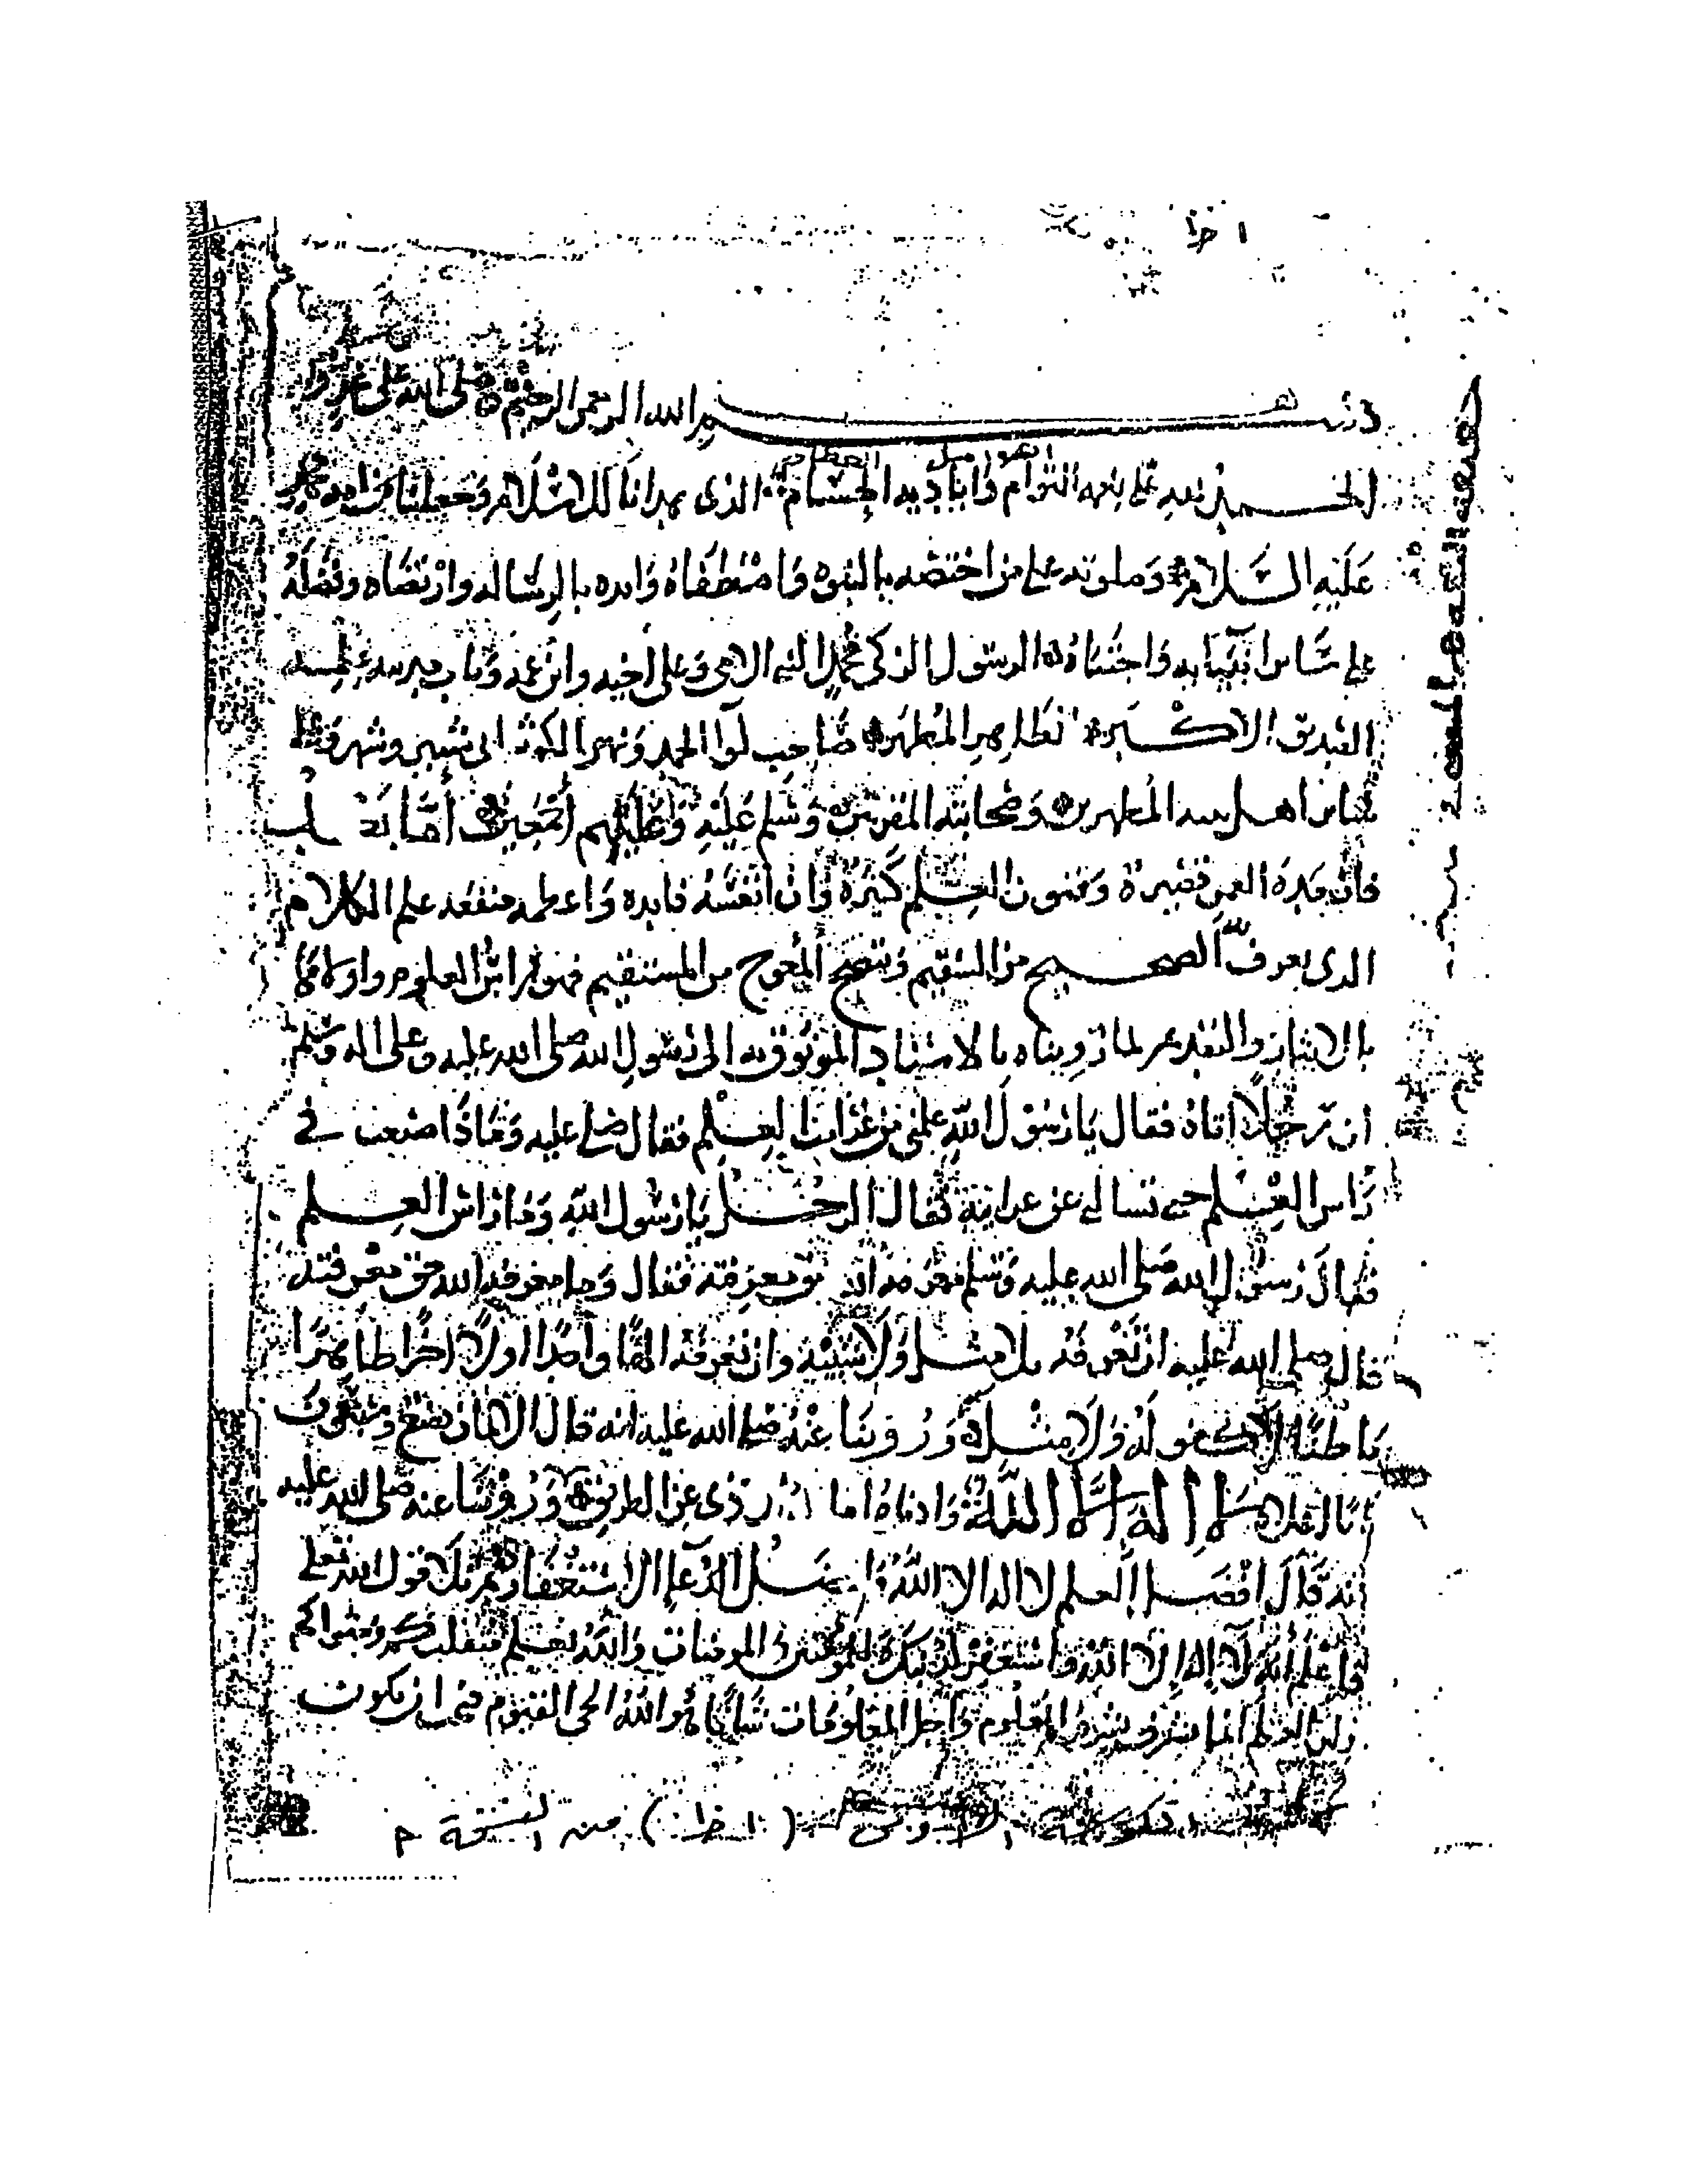 ١ ظ
بسم الله الرحمن الرحيم صلى الله على
الحمد لله على نعمه التوام واياديه الجسام الذي هدانا للاسلام وجعلنا من امة محمد
عليه السلام وصلوته على من اختصه بالنبوه واصطفاه وايده بالرساله وارتضاه وفضله
على سائر انبيايه واجتباه الرسول الزكي محمد النبي الامي وعلى اخيه وابن عمه وباب مدينه علمه
الصديق الاكبر الطاهر المطهر صاحب لوا الحمد ونهر الكوثر ابي شبير وشبر وعلى
سائر اهل بيته المطهرين وصحابته المقربين وسلم عليه وعليهم أجمعين أما بعد
فان مدة العمر قصيرة وفنون العلم كثيرة وان انفسه فايده واعظمه منفعه علم الكلام
الذي يعرف الصحيح من السقيم ويتضح المعوج من المستقيم فهو راس العلوم واولاها
بالايثار والتقديم لما رويناه بالاسناد الموثوق به الى رسول الله صلى الله عليه وعلى اله وسلم
ان رجلا اتاه فقال يا رسول الله علمني من غرائب العلم فقال صلى عليه وماذا صنعت في
راس العلم حتى تسالني عن غرايبه فقال الرجل يا رسول الله وما راس العلم
فقال رسول الله صلى الله عليه وسلم معرفة الله حق معرفته فقال وما معرفه الله حق معرفته
قال صلى الله عليه ان تعرفه بلا مثل ولا شبيه وان تعرفه الها واحدا اولا اخرا ظاهرا
باطنا لا كفو له ولا مثل له وروينا عنه صلى الله عليه انه قال الايمان بضع وسبعون
بابا اعلاها لا إله إلا الله وادناها اماطة الاذى عن الطريق وروينا عنه صلى الله عليه
انه قال افضل العلم لا اله الا الله وافضل الدعا الاستغفار ثم تلا قول الله تعالى
فاعلم أنه لا إله إلا الله واستغفر لذنبك وللمؤمنين والمومنات والله يعلم متقلبكم ومثواكم
ولان العلم انما يشرف بشرف المعلوم واجل المعلومات شانا هو الله الحي القيوم فيجب ان يكون
الاولى (١ ظ) من النسخة م